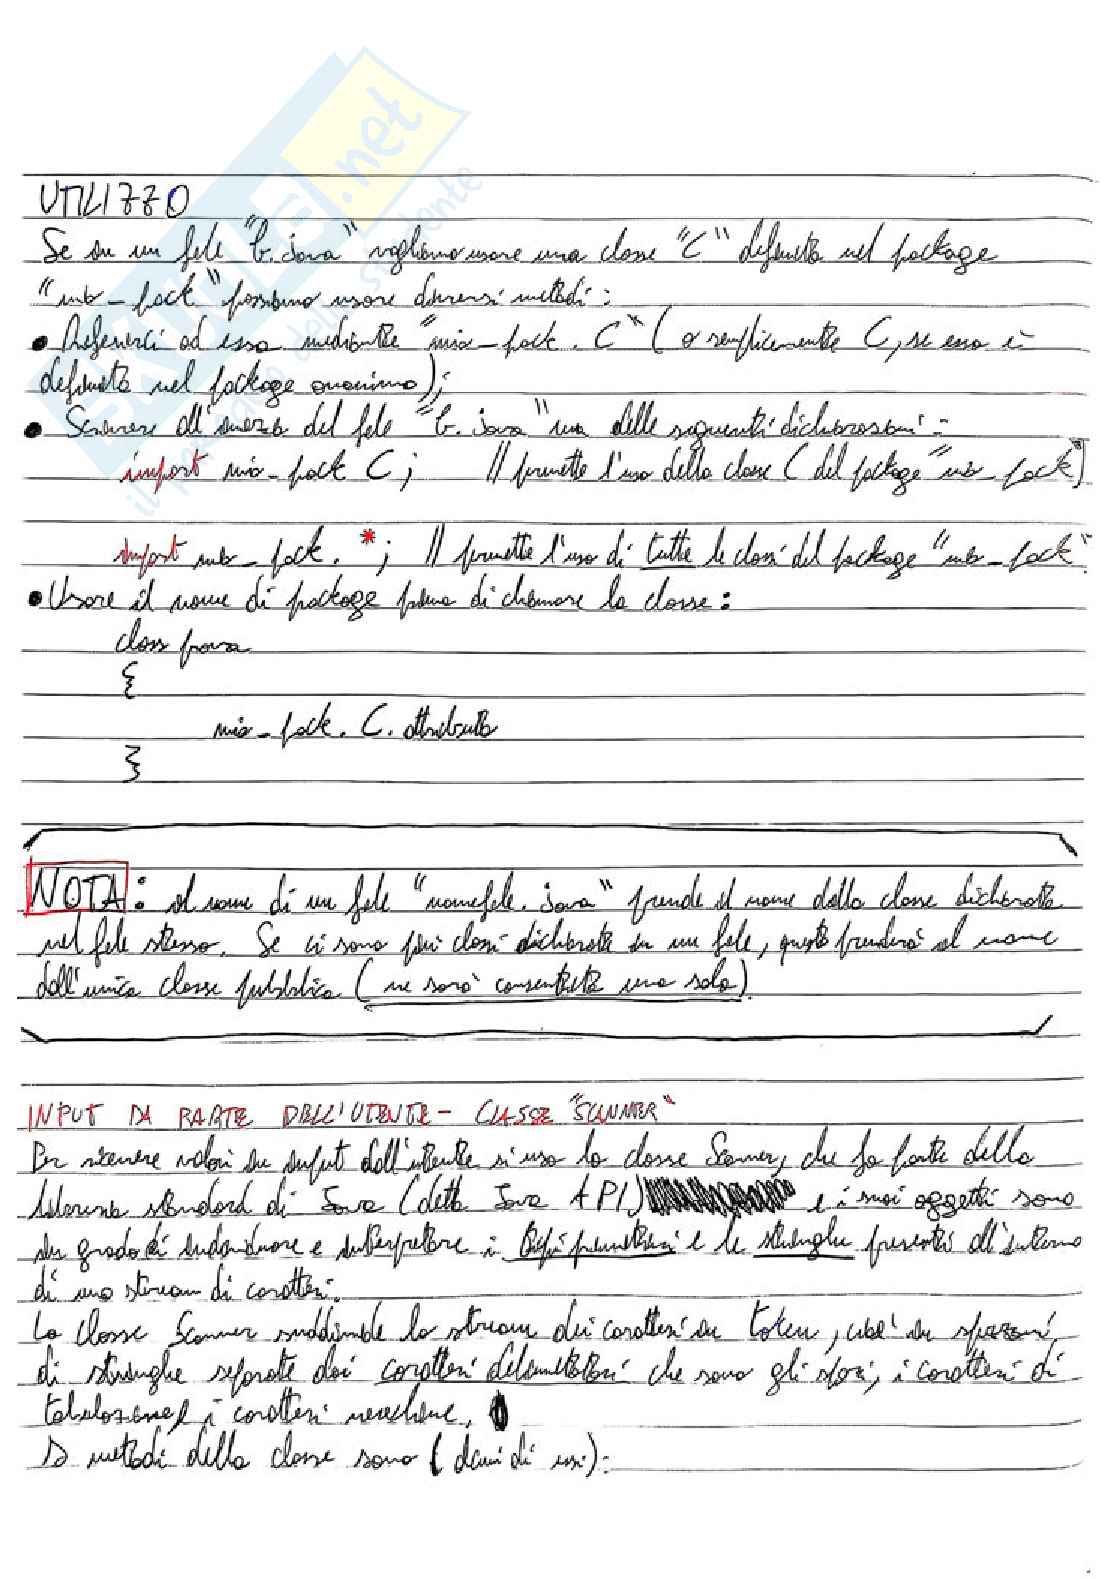 SKUOLA.net
il portale dello studente
UTILIZZO
Se in un file "b.java" vogliamo usare una classe "C" definita nel package
"mio_pack" possiamo usare diversi metodi:
• Riferirci ad essa mediante "mio_pack. C" (o semplicemente C, se essa è
definita nel package anonimo);
• Scrivere all'inizio del file "b.java" una delle seguenti dichiarazioni:
import mio_pack C; // permette l'uso della classe C del package "mio_pack"
import mio_pack. *; // permette l'uso di tutte le classi del package "mio_pack"
• Usare il nome di package prima di chiamare la classe:
class prova
{
mio_pack. C. attributo
}
NOTA: il nome di un file "nomefile.java" prende il nome della classe dichiarata
nel file stesso. Se ci sono più classi dichiarate in un file, questo prenderà il nome
dall'unica classe pubblica (ne sarà consentita una sola).
INPUT DA PARTE DELL'UTENTE - CLASSE "SCANNER"
Per ricevere valori in input dall'utente si usa la classe Scanner, che fa parte della
libreria standard di Java (detta Java API) e i suoi oggetti sono
in grado di individuare e interpretare i tipi primitivi e le stringhe presenti all'interno
di uno stream di caratteri.
La classe Scanner suddivide lo stream dei caratteri in token, cioè in spezzoni
di stringhe separate dai caratteri delimitatori che sono gli spazi, i caratteri di
tabulazione e i caratteri newline.
I metodi della classe sono (alcuni di essi):